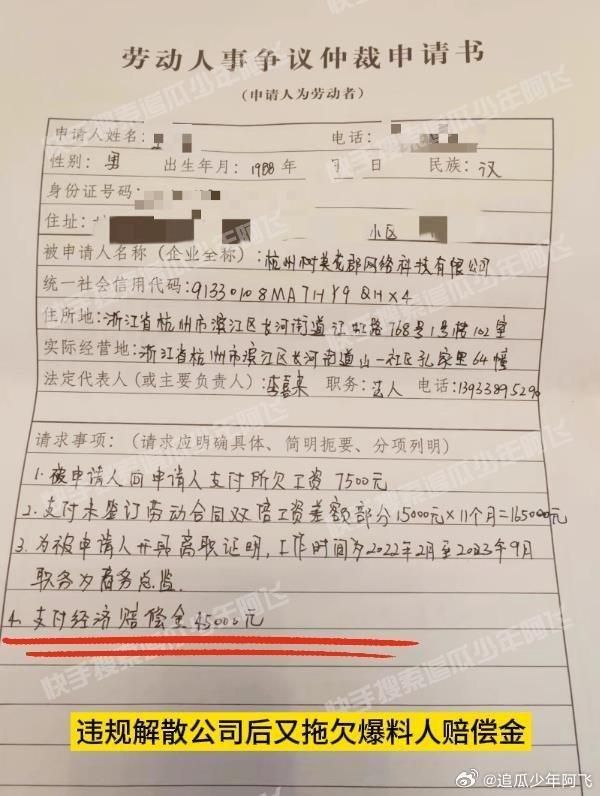 劳动人事争议仲裁申请书
（申请人为劳动者）
申请人姓名: 电话:
性别: 男 出生年月: 1988 年 月 日 民族: 汉
身份证号码:
住址: 小区
被申请人名称（企业全称）: 杭州树英克郡网络科技有限公司
统一社会信用代码: 91330108MA7HY9QHX4
住所地: 浙江省杭州市滨江区长河街道江虹路768号1号楼102室
实际经营地: 浙江省杭州市滨江区长河街道山一社区孔家里64幢
法定代表人（或主要负责人）: 李嘉 职务: 法人 电话: 1393389529
请求事项:（请求应明确具体、简明扼要、分项列明）
1. 被申请人向申请人支付所欠工资 7500元
2. 支付未签订劳动合同双倍工资差额部分 15000元×11个月=165000元
3. 为被申请人开具离职证明, 工作时间为2022年2月至2023年9月
职务为商务总监.
4. 支付经济赔偿金 45000元
违规解散公司后又拖欠爆料人赔偿金
快手搜索追瓜少年阿飞
@追瓜少年阿飞